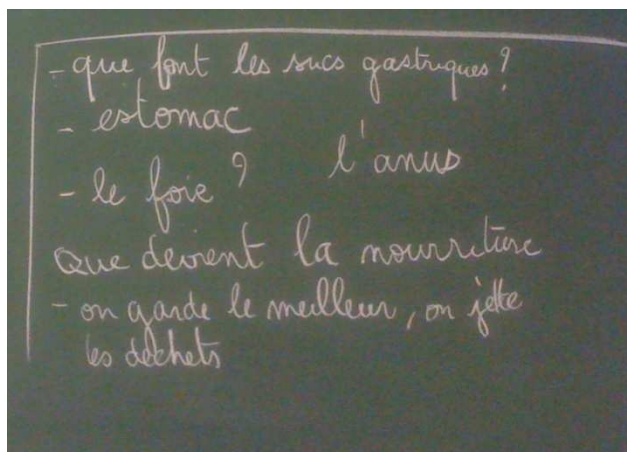 - que font les sucs gastriques ?
- estomac
- le foie ? l'anus
Que devient la nourriture
- on garde le meilleur, on jette
les déchets